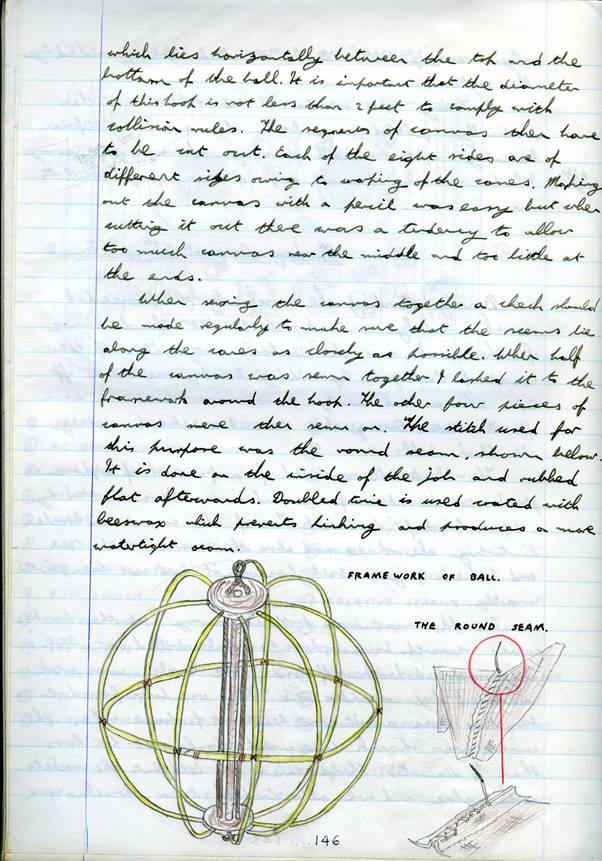 which lies horizontally between the top and the
bottom of the ball. It is important that the diameter
of this hook is not less than 2 feet to comply with
collision rules. The segments of canvas then have
to be cut out. Each of the eight sides are of
different sizes owing to warping of the canes. Making
out the canvas with a pencil was easy but when
cutting it out there was a tendency to allow
too much canvas near the middle and too little at
the ends.
When sewing the canvas together a check should
be made regularly to make sure that the seems lie
along the canes as closely as possible. When half
of the canvas was sewn together I lashed it to the
framework around the hoop. The other four pieces of
canvas were then sewn on. The stitch used for
this purpose was the round seam, shown below.
It is done on the inside of the job and rubbed
flat afterwards. Doubled twine is used coated with
beeswax which prevents kinking and produces a more
watertight seam.
FRAMEWORK OF BALL.
THE ROUND SEAM.
146